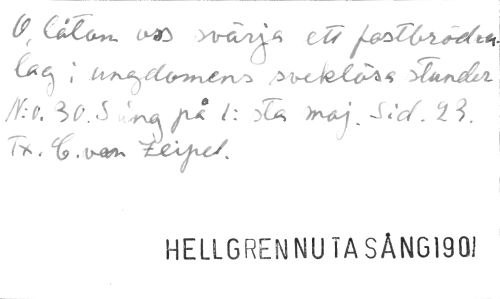 O, låtom oss svärja ett fostbrödra-
lag i ungdomens sveklösa stunder
N:o. 30. Sång på 1:sta maj. Sid. 23.
Tx. C. von Zeipel.
HELLGREN NUTA SÅNG 1901